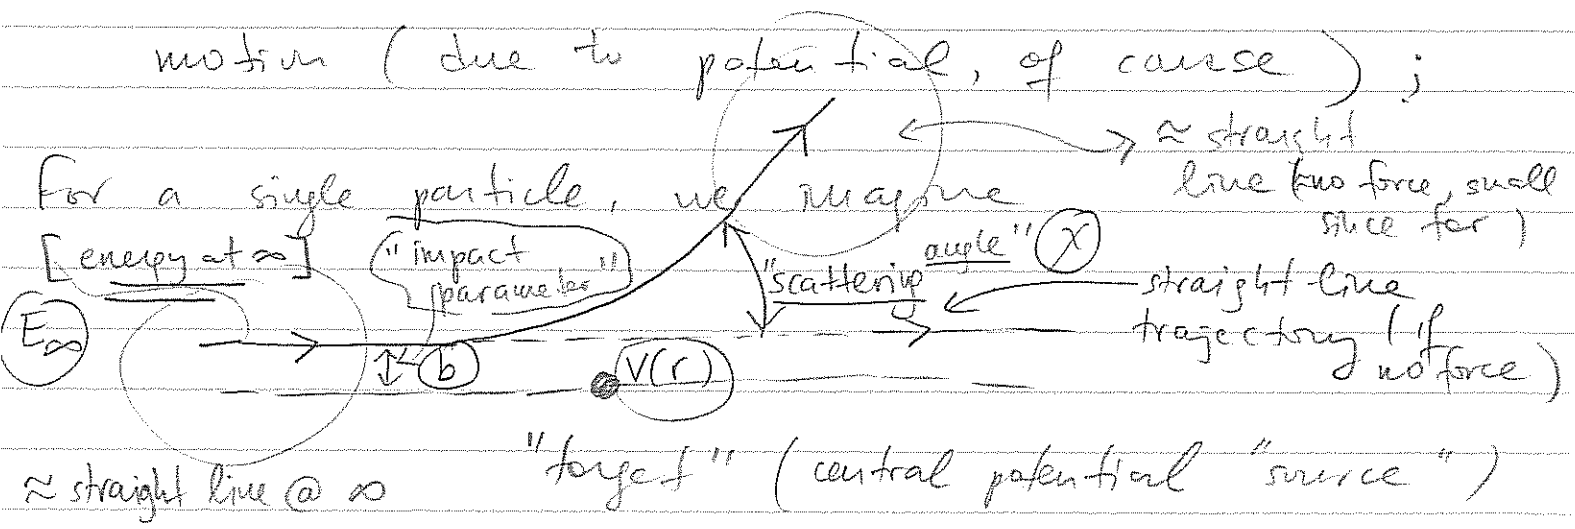 motion (due to potential, of cause);
≈ straight
line (no force, small
since far)
For a single particle, we imagine
[energy at ∞]
"impact
parameter"
"scattering angle" χ
straight-line
trajectory (if
no force)
E∞
b
V(r)
"target" (central potential "source")
≈ straight line @ ∞